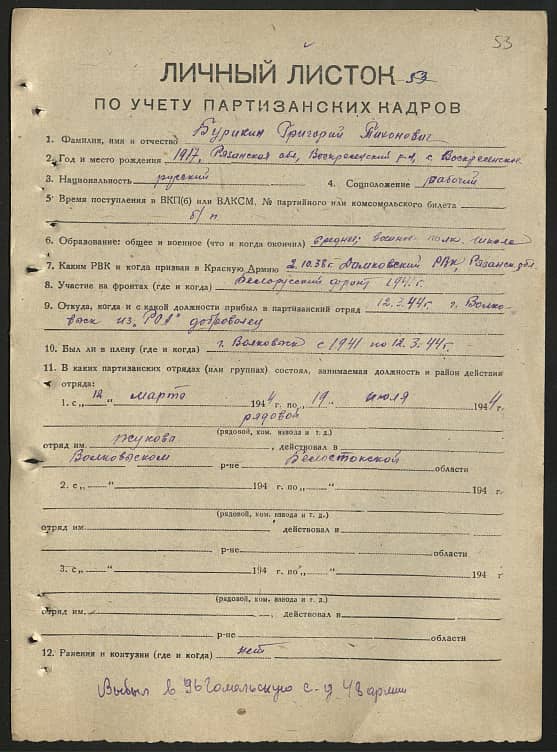 53
ЛИЧНЫЙ ЛИСТОК 53
ПО УЧЕТУ ПАРТИЗАНСКИХ КАДРОВ
1. Фамилия, имя и отчество Бурикин Григорий Тихонович
2. Год и место рождения 1917, Рязанская обл, Воскресенский р-н, с. Воскресенское
3. Национальность русский 4. Соцположение рабочий
5. Время поступления в ВКП(б) или ВЛКСМ, № партийного или комсомольского билета
б/п
6. Образование: общее и военное (что и когда окончил) средн; военное полк. школа
7. Каким РВК и когда призван в Красную Армию 2.10.38г. РВК, Рязанск. обл.
8. Участие на фронтах (где и когда) Белорусский фронт 1941г.
9. Откуда, когда и с какой должности прибыл в партизанский отряд 12.3.44г. г. Волко-
выск из „РОА" доброволец
10. Был ли в плену (где и когда) г. Волковыск с 1941 по 12.3.44г.
11. В каких партизанских отрядах (или группах) состоял, занимаемая должность и район действия
отряда:
1. с „12" марта 1944 г. по „19" июля 1944 г.
рядовой
(рядовой, ком. взвода и т. д.)
отряд им. Жукова, действовал в
Волковыском р-не Белостокской области
2. с „ " 194 г. по „ " 194 г.
(рядовой, ком. взвода и т. д.)
отряд им. действовал в
р-не области
3. с „ " 194 г. по „ " 194 г
(рядовой, ком. взвода и т. д.)
отряд им. , действовал в
р-не области
12. Ранения и контузии (где и когда) нет
Выбыл в 96 Гомельскую с-д 48 армии